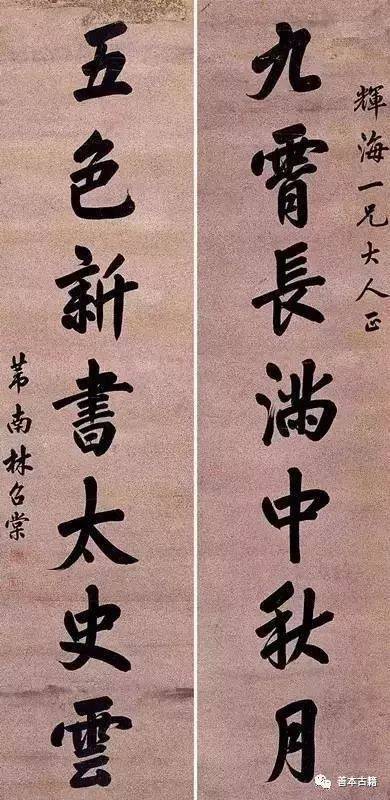 輝海一兄大人正
九霄長滿中秋月
五色新書太史雲
芾南林召棠
善本古籍